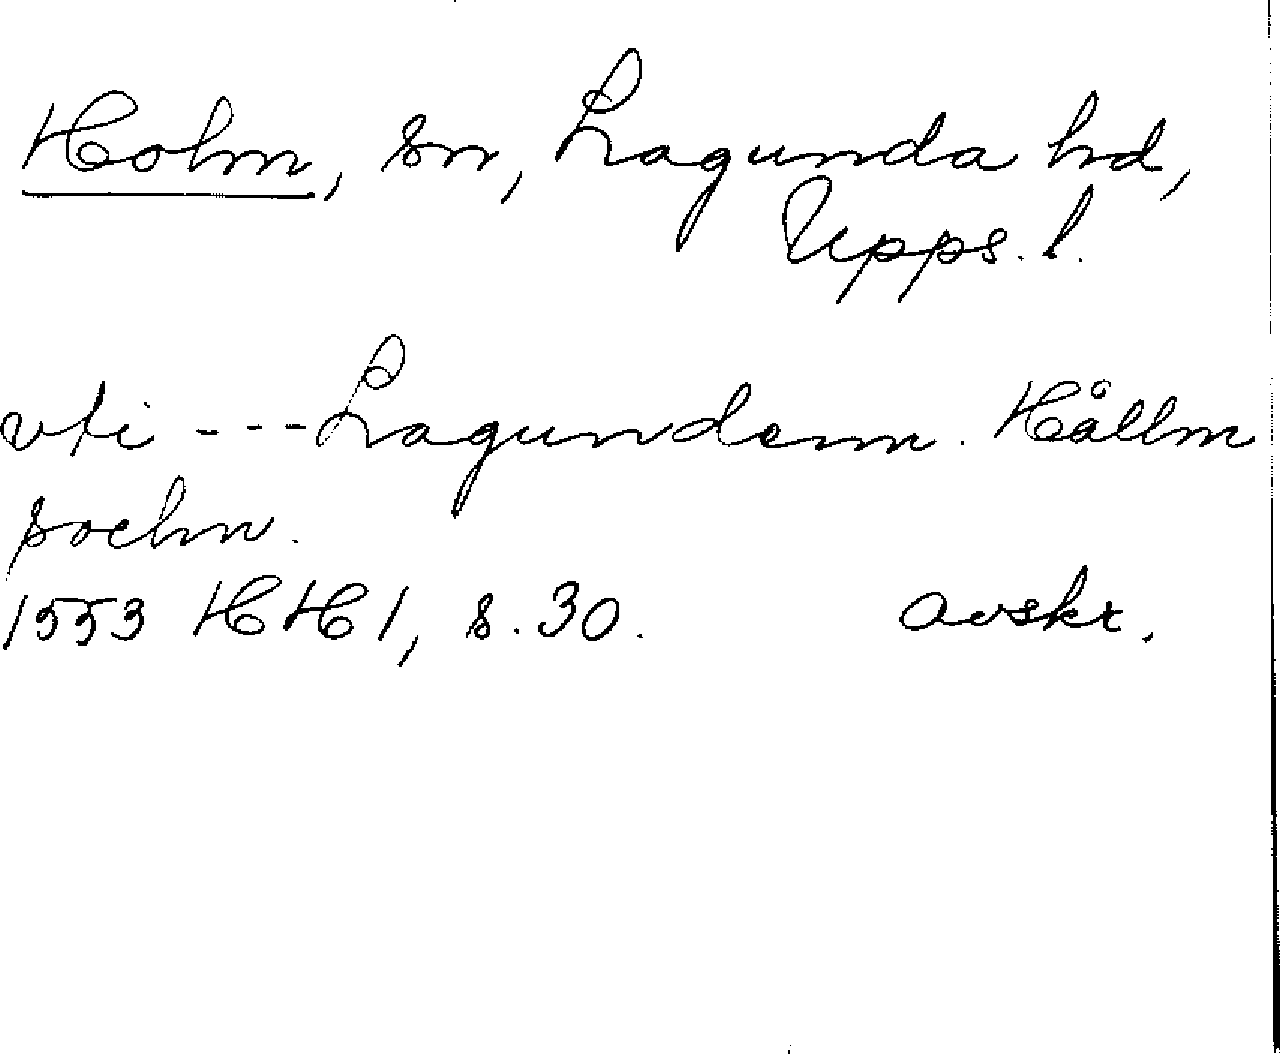 Holm, sn, Lagunda hd,
Upps. l.
vti --- Lagundenn. Hållm
sochn.
1553 HH 1, s. 30. avskr.